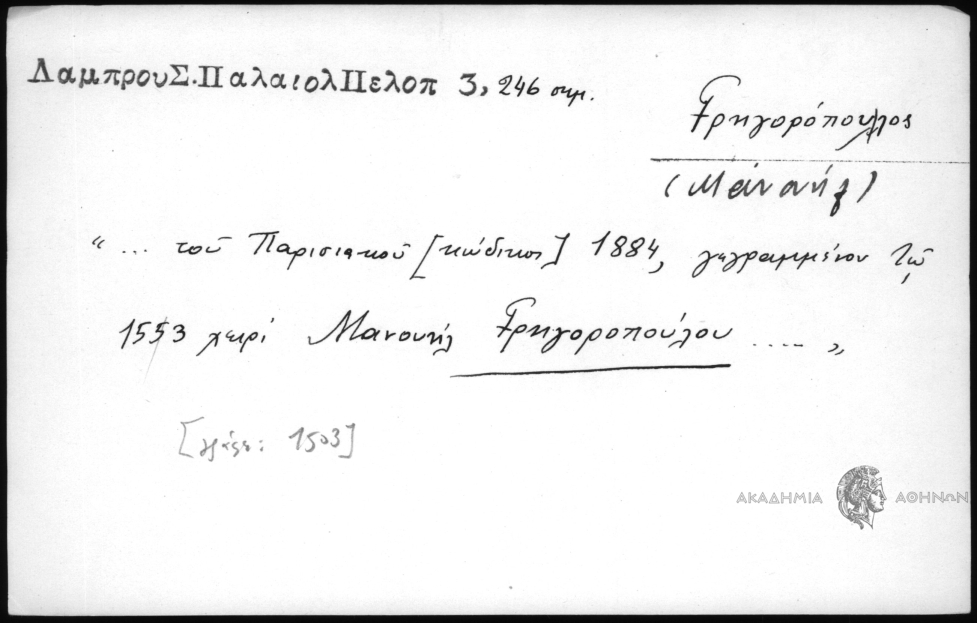 ΛαμπρουΣ.ΠαλαιολΠελοπ 3, 246 σημ.
Γρηγορόπουλος
(Μανουήλ)
“ ... τοῦ Παρισιακοῦ [κώδικος] 1884, γεγραμμένου τῷ
1553 χειρὶ Μανουὴλ Γρηγοροπούλου ..... „
[γράφε: 1503]
ΑΚΑΔΗΜΙΑ ΑΘΗΝΩΝ